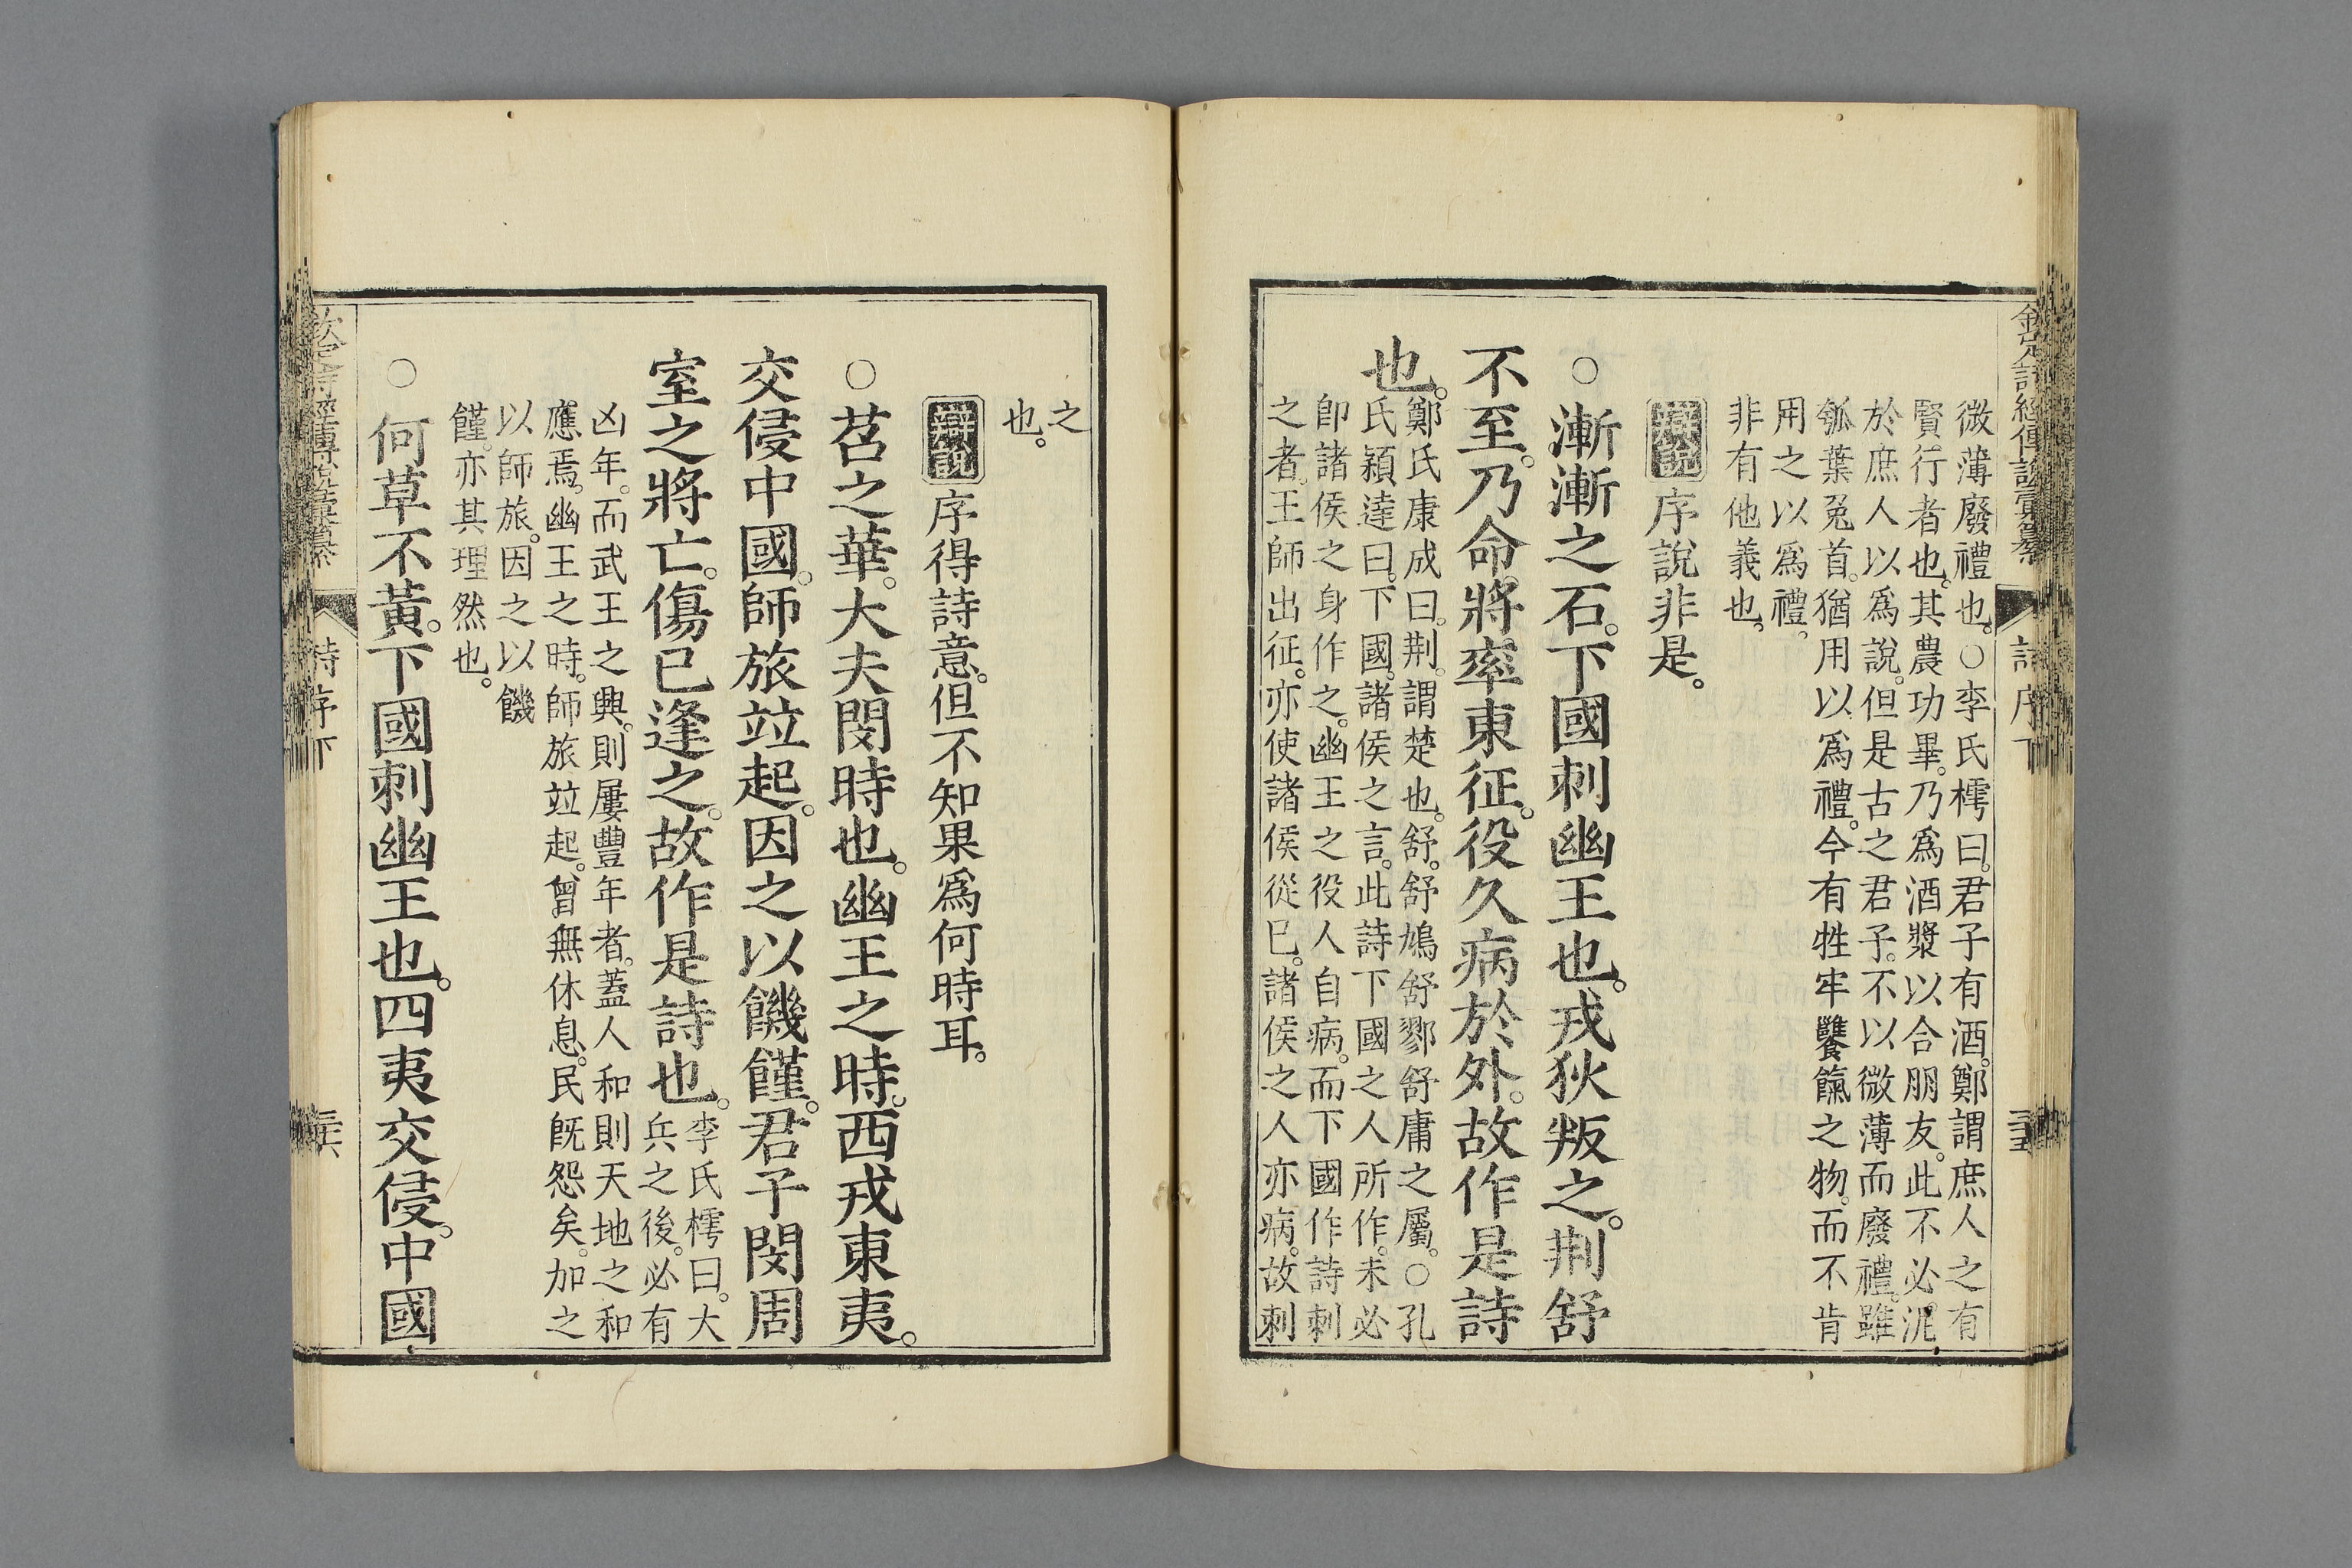 欽定詩經傳說彙纂 詩序下 三五
微薄廢禮也。○李氏樗曰。君子有酒。鄭謂庶人之有
賢行者也。其農功畢。乃爲酒漿以合朋友。此不必泥。
於庶人以爲說。但是古之君子。不以微薄而廢禮。雖
瓠葉兔首。猶用以爲禮。今有牲牢饔餼之物。而不肯
用之以爲禮。
非有他義也。
辯說 序說非是。
○漸漸之石。下國刺幽王也。戎狄叛之。荆舒
不至。乃命將率東征。役久病於外。故作是詩
也。
鄭氏康成曰。荆。謂楚也。舒。舒鳩舒鄝舒庸之屬。○孔
氏穎達曰。下國。諸侯之言。此詩下國之人所作。未必
卽諸侯之身作之。幽王之役人自病。而下國作詩刺
之者。王師出征。亦使諸侯從巳。諸侯之人亦病。故刺
之
也。
辯說 序得詩意。但不知果爲何時耳。
○苕之華。大夫閔時也。幽王之時。西戎東夷。
交侵中國。師旅竝起。因之以饑饉。君子閔周
室之將亡。傷已逢之。故作是詩也。
李氏樗曰。大
兵之後。必有
凶年。而武王之興。則屢豐年者。蓋人和則天地之和
應焉。幽王之時。師旅竝起。曾無休息。民旣怨矣。加之
以師旅。因之以饑
饉。亦其理然也。
○何草不黃。下國刺幽王也。四夷交侵。中國
欽定詩經傳說彙纂 詩序下 三六